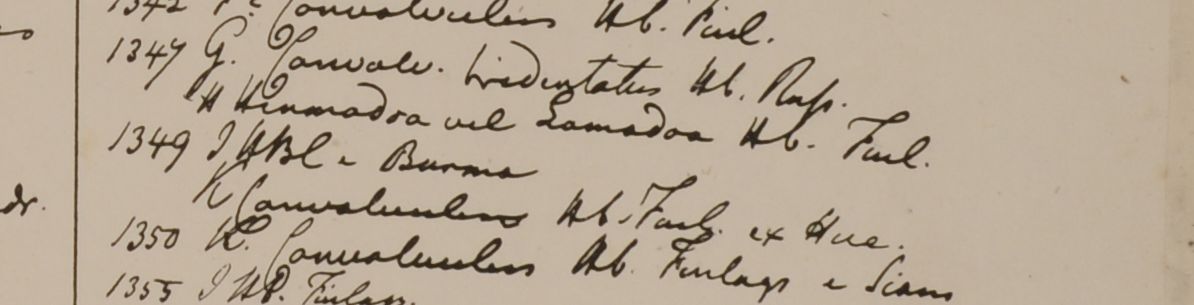 1342 F. Convolvulus Hb. Finl.
1347 G. Convolv. tridentatus Hb. Russ.
H Hinmadoa vel Lamadoa Hb. Finl.
1349 I HBC e Burma
K Convolvulus Hb. Finl. ex Hue.
1350 K. Convolvulus Hb. Finlays e Siam
1355 I Hb. Finlays.
dr.